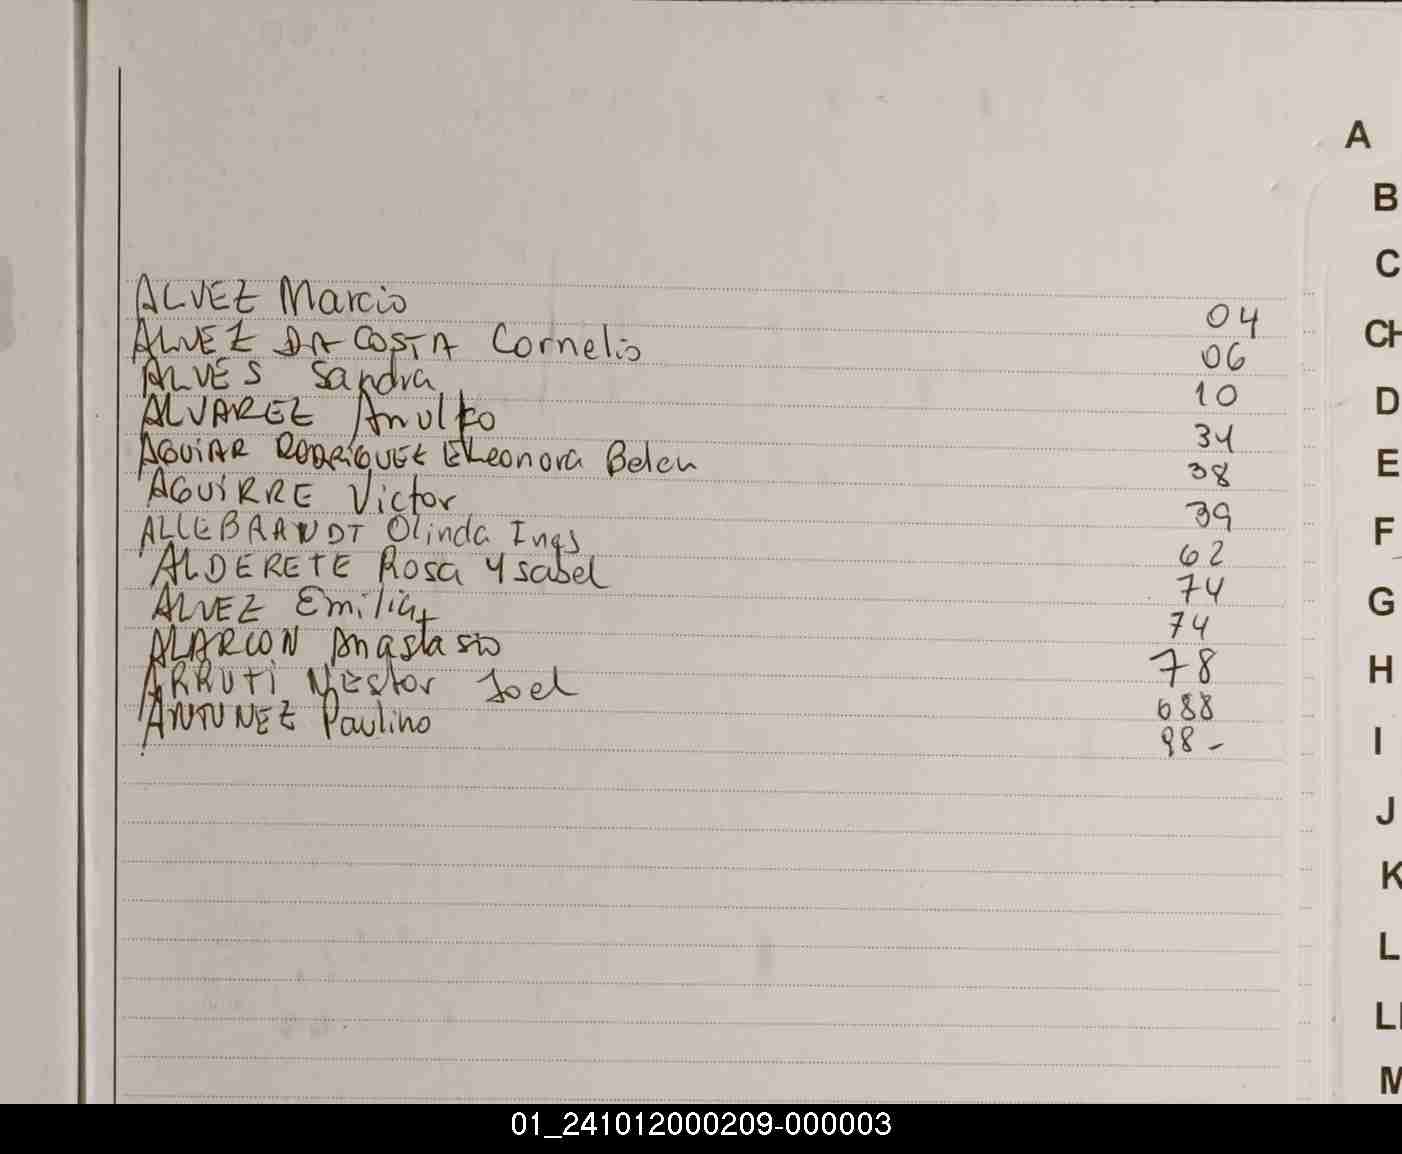 ALVEZ Marcio 04
ALVEZ DA COSTA Cornelio 06
ALVES Sandra 10
ALVAREZ Anulfo 34
AGUiAR RODRiGUEZ Eleonora Belen 38
AGUiRRE Victor 39
ALLEBRANDT Olinda Ines 62
ALDERETE Rosa Ysabel 74
ALVEZ Emilia 74
ALARCON Anastasio 78
ARRUTi Nestor Joel 688
ANTUNEZ Paulino 98-
A
B
C
CH
D
E
F
G
H
I
J
K
L
LL
M
01_241012000209-000003